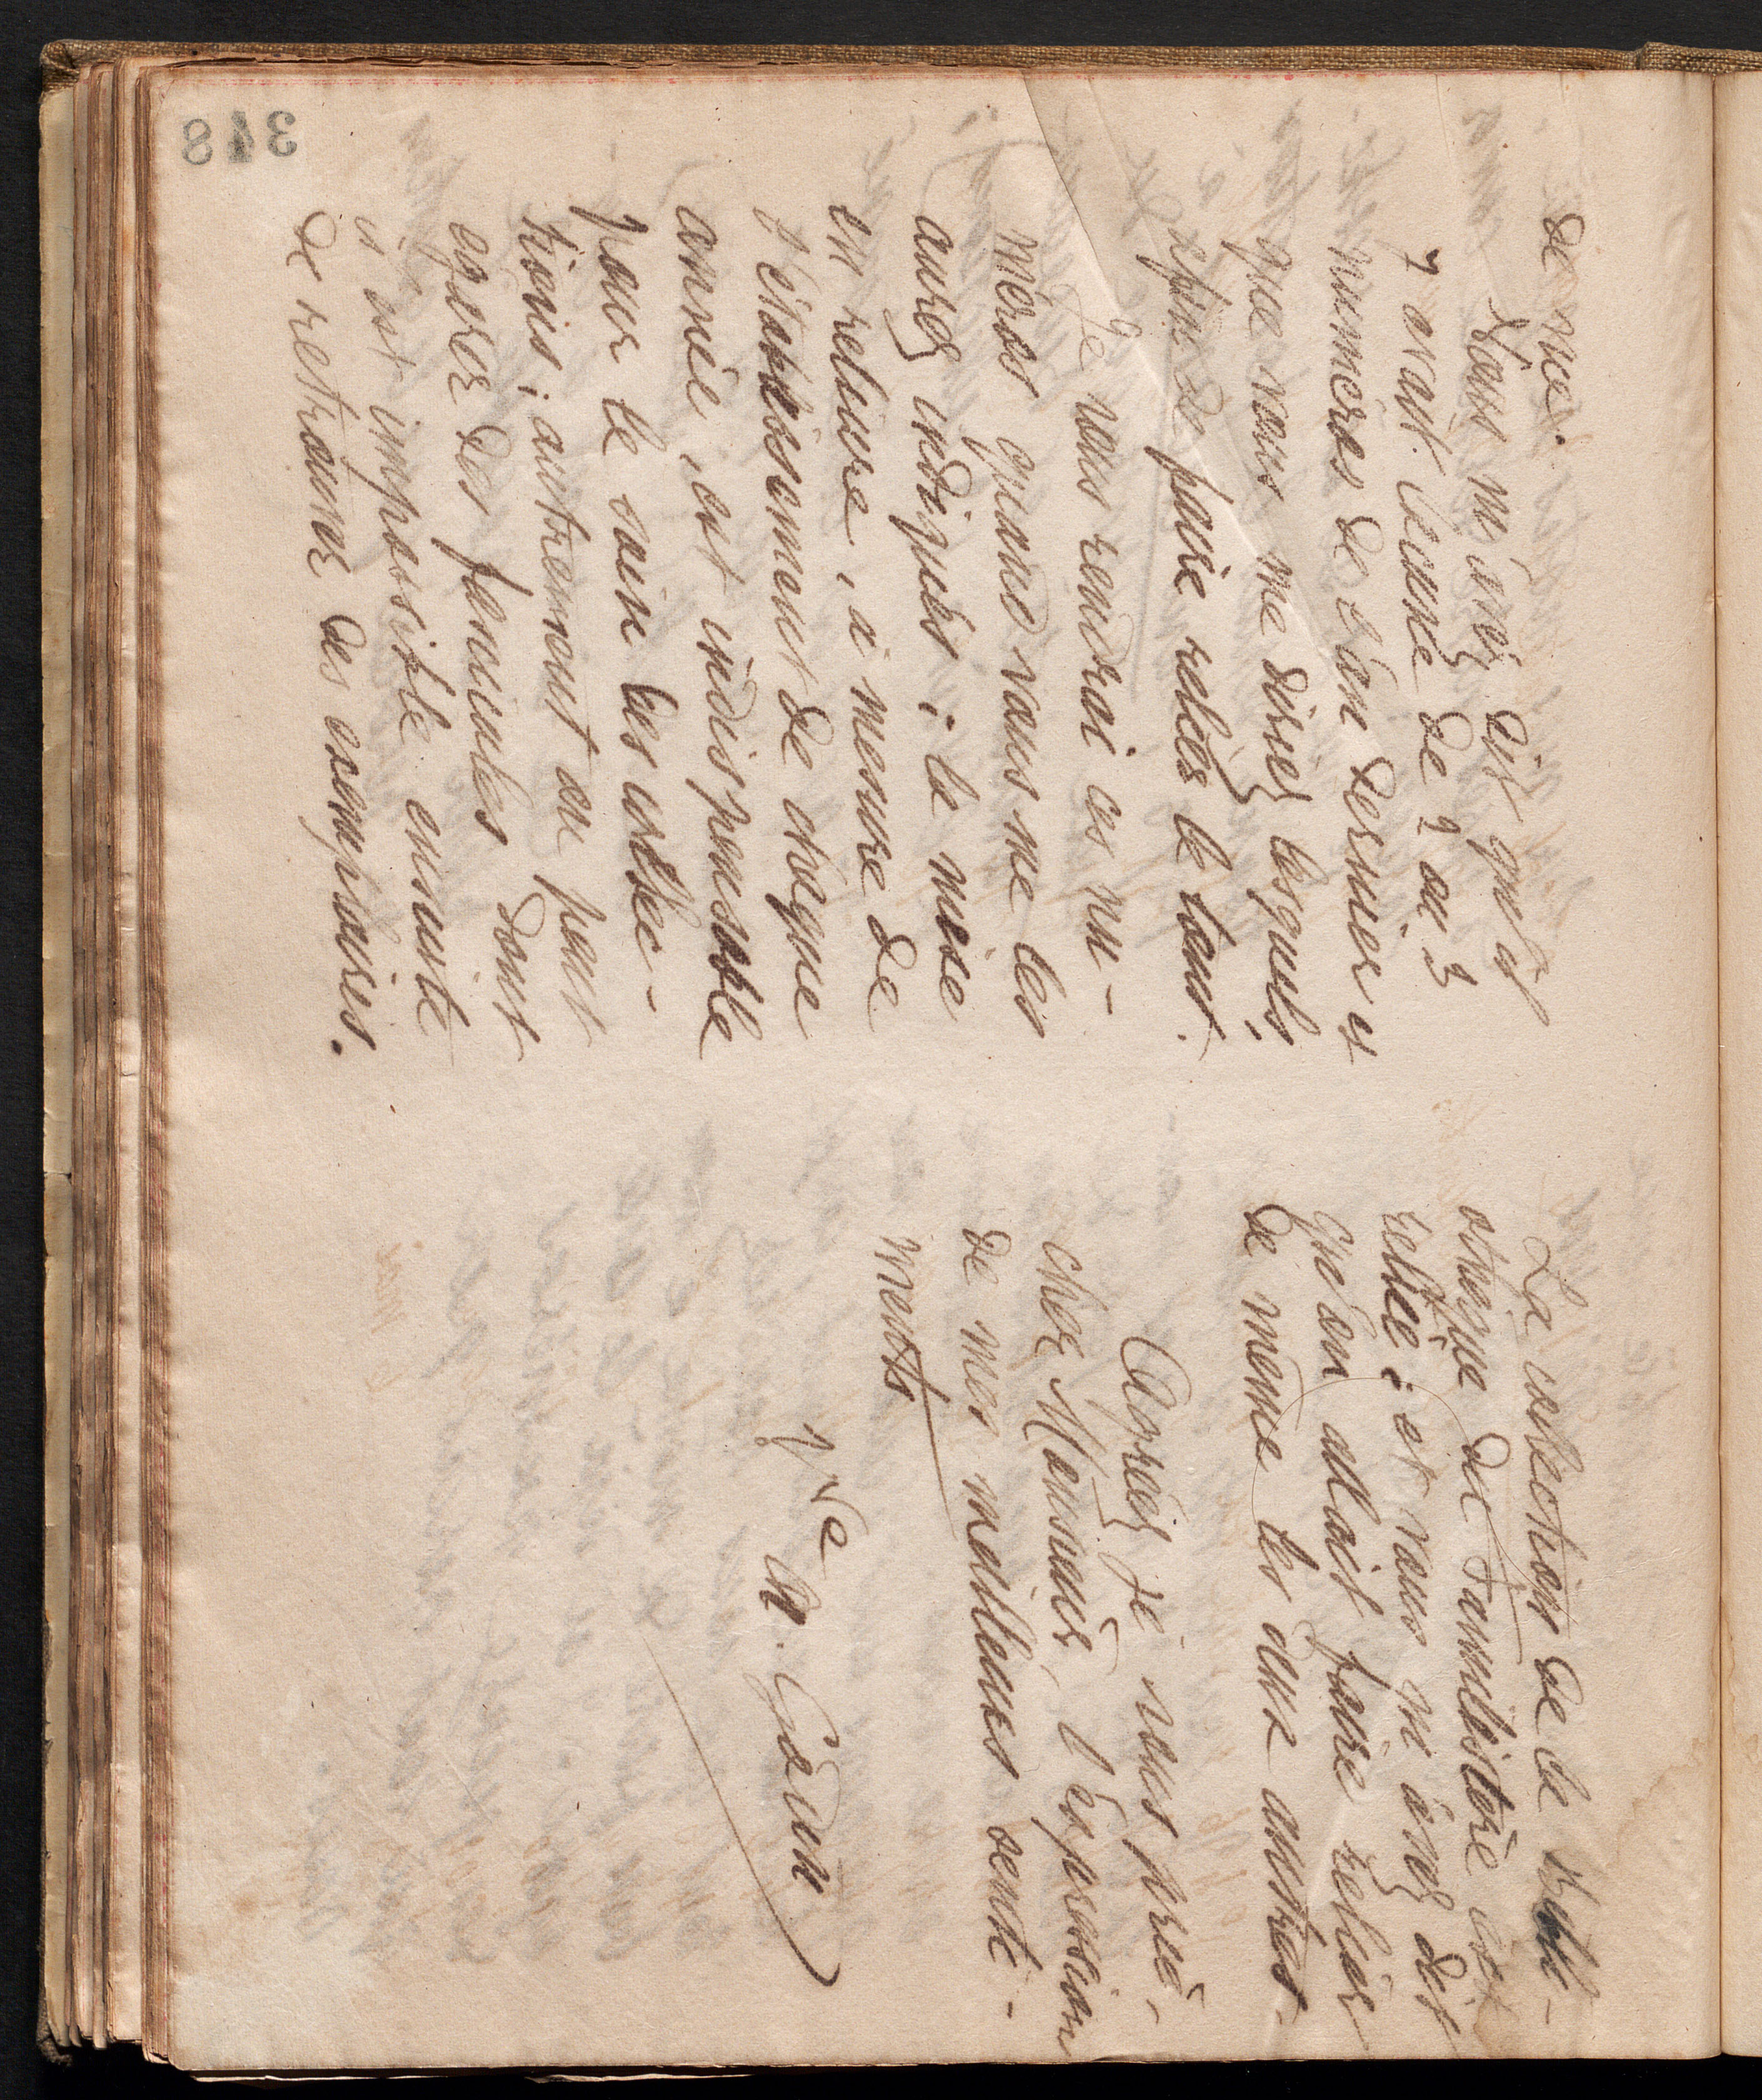 348
de vue.
Vous m'avez dit qu'il
y avait lacune de 2 ou 3
numéros de l'an dernier et
que vous me diriez lesquels,
afin de faire relier le tout.
Je vous rendrai ces nu-
méros quand vous me les
aurez indiqués ; la mise
en reliure, à mesure de
l'établissement de chaque
année, est indispensable
pour le soin des collec-
tions ; autrement on peut
égarer des fascicules dont
il est impossible ensuite
de retrouver des exemplaires.
La collection de la Bibli-
othèque du Familistère est
reliée ; et vous m'avez dit
qu'on allait faire relier
de même les deux autres.
Agréez je vous prie,
cher Monsieur, l'expression
de mes meilleurs senti-
ments
Vve A. Godin